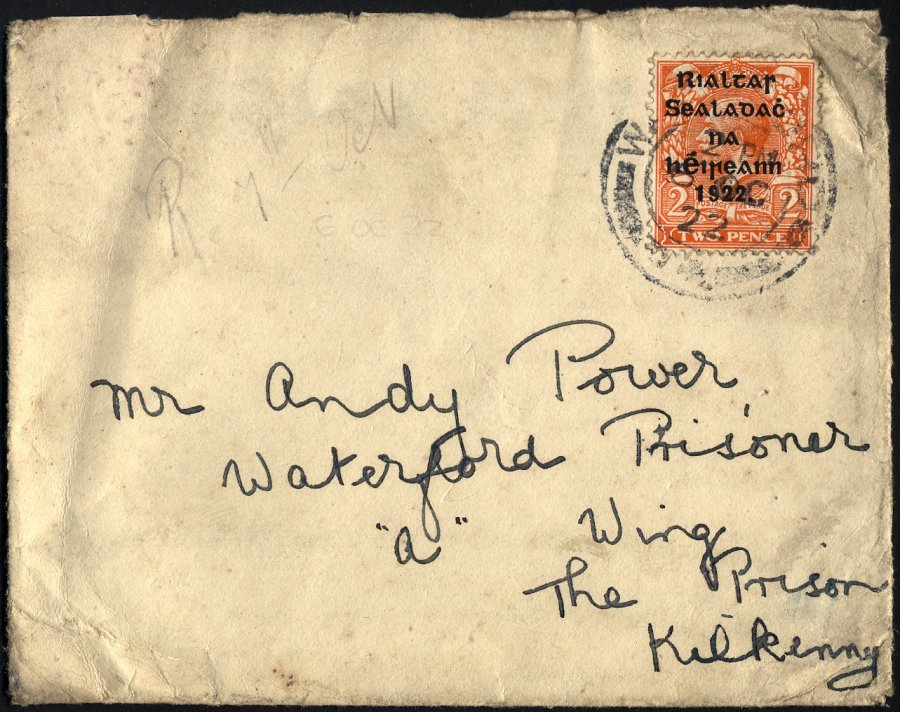 Rialtar
Sealadaċ
na
hÉireann
1922
2 2
TWO PENCE
2 PM
22
Mr Andy Power
Waterford Prisoner
"A" Wing
The Prison
Kilkenny